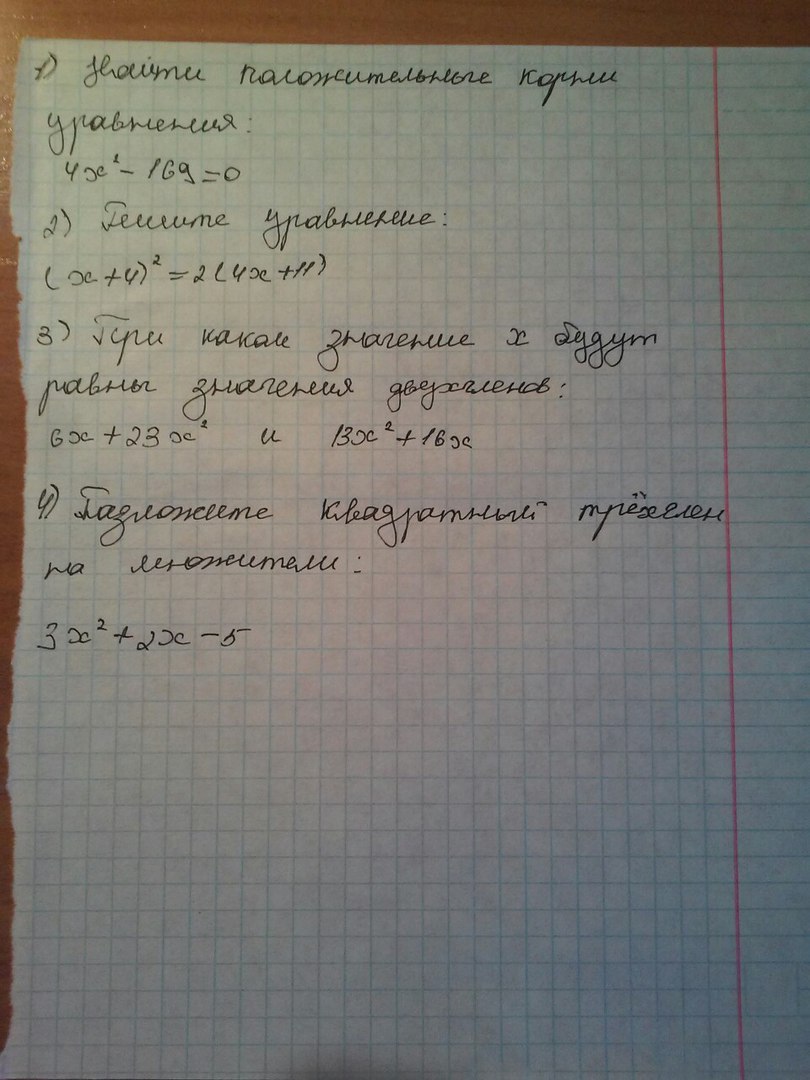 1) Найти положительные корни
уравнения:
4x² - 169 = 0
2) Решите уравнение:
(x+4)² = 2(4x+11)
3) При каком значение x будут
равны значения двухчленов:
6x + 23x² и 13x² + 16x
4) Разложите квадратный трёхчлен
на множители:
3x² + 2x - 5